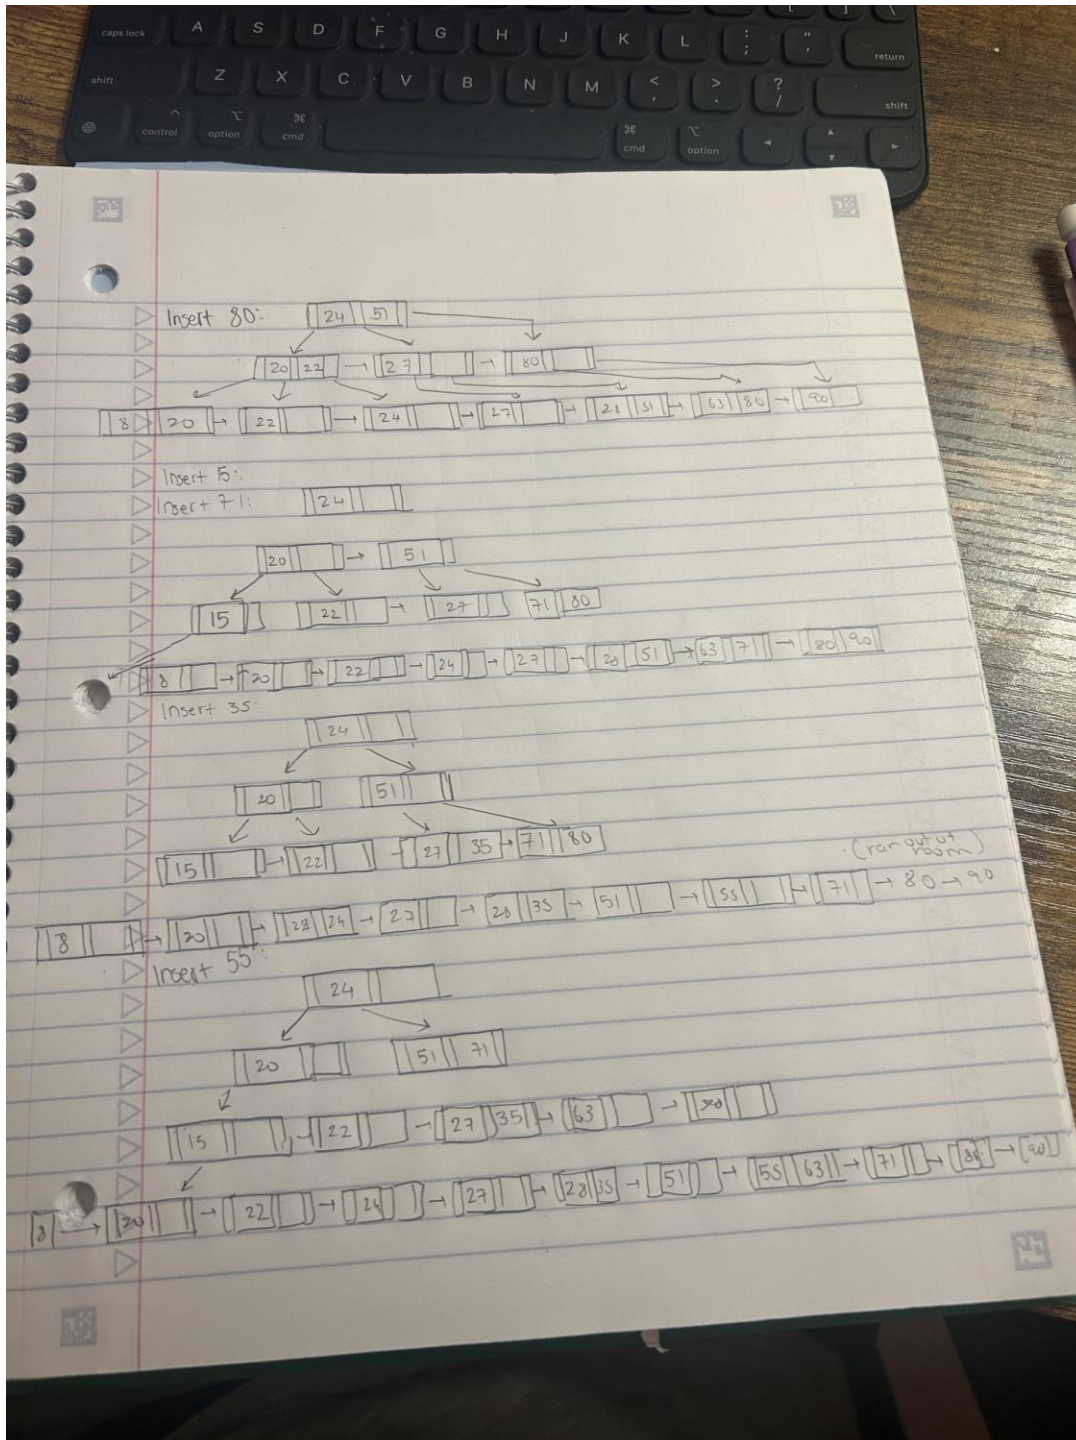 caps lock A S D F G H J K L : ; " ' return
shift Z X C V B N M < , > . ? / shift
control option cmd cmd option
Insert 80: 24 51
20 22 27 80
8 20 22 24 27 28 51 63 80 90
Insert 15:
Insert 71: 24
20 51
15 22 27 71 80
8 20 22 24 27 28 51 63 71 80 90
Insert 35:
24
20 51
15 22 27 35 71 80
(ran out of room)
8 20 22 24 27 28 35 51 55 71 80 90
Insert 55:
24
20 51 71
15 22 27 35 63
8 20 22 24 27 28 35 51 55 63 71 80 90